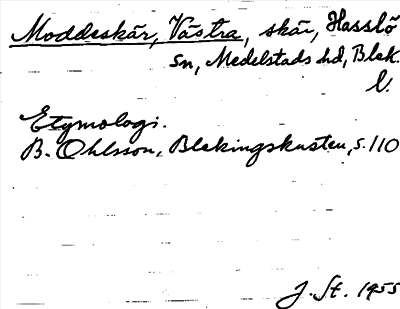 Moddeskär, Västra, skär, Hasslö
sn, Medelstads hd, Blek.
l.
Etymologi.
B. Ohlsson, Blekingskusten, s. 110
J. St. 1955